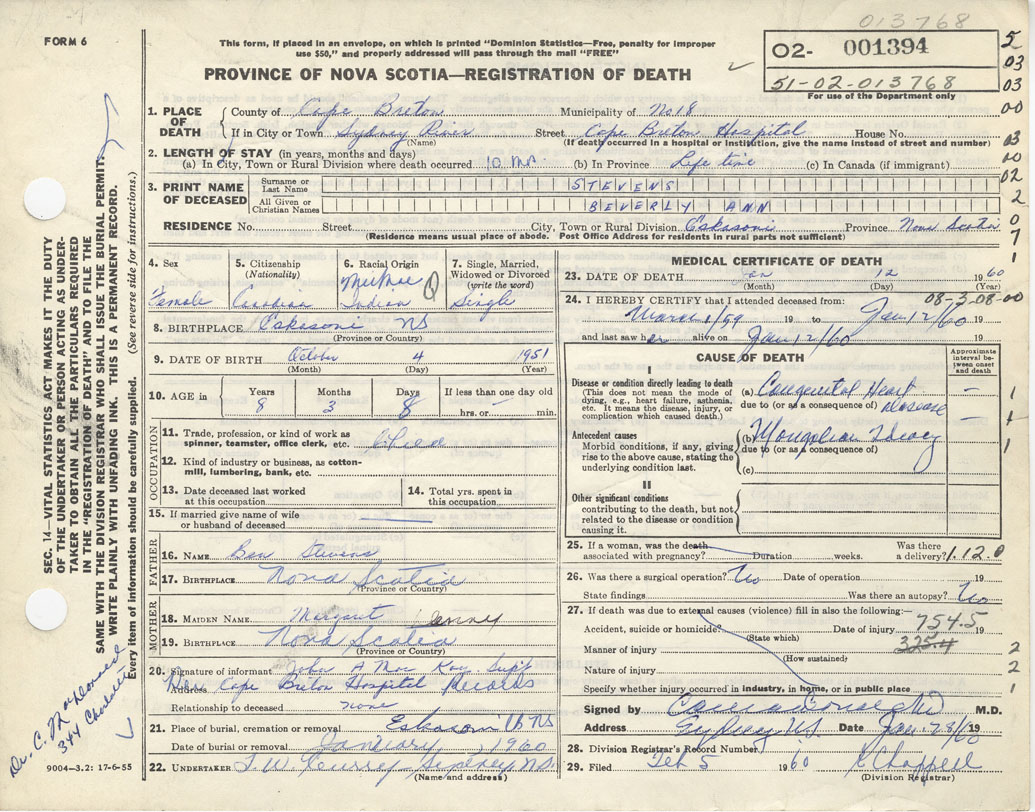 013768
FORM 6
This form, if placed in an envelope, on which is printed "Dominion Statistics—Free, penalty for improper
use $50," and properly addressed will pass through the mail "FREE"
02- 001394
51-02-013768
For use of the Department only
PROVINCE OF NOVA SCOTIA—REGISTRATION OF DEATH
5
03
03
00
03
00
02
2
0
7
1. PLACE OF DEATH
County of Cape Breton Municipality of No 18
If in City or Town Sydney River Street Cape Breton Hospital House No.
(Name) (If death occurred in a hospital or institution, give the name instead of street and number)
2. LENGTH OF STAY (in years, months and days)
(a) In City, Town or Rural Division where death occurred 10 Mo. (b) In Province Life time (c) In Canada (if immigrant)
3. PRINT NAME OF DECEASED
Surname or Last Name STEVENS
All Given or Christian Names BEVERLY ANN
RESIDENCE No. Street City, Town or Rural Division Eskasoni Province Nova Scotia
(Residence means usual place of abode. Post Office Address for residents in rural parts not sufficient)
4. Sex
Female
5. Citizenship
(Nationality)
Canadian
6. Racial Origin
MicMac
Indian
7. Single, Married,
Widowed or Divorced
(write the word)
Single
8. BIRTHPLACE Eskasoni NS
(Province or Country)
9. DATE OF BIRTH October 4 1951
(Month) (Day) (Year)
10. AGE in
Years Months Days If less than one day old
8 3 8 hrs. or min.
OCCUPATION
11. Trade, profession, or kind of work as
spinner, teamster, office clerk, etc. Child
12. Kind of industry or business, as cotton-
mill, lumbering, bank, etc.
13. Date deceased last worked
at this occupation
14. Total yrs. spent in
this occupation
15. If married give name of wife
or husband of deceased
FATHER
16. NAME Ben Stevens
17. BIRTHPLACE Nova Scotia
(Province or Country)
MOTHER
18. MAIDEN NAME Margaret Denny
19. BIRTHPLACE Nova Scotia
(Province or Country)
20. Signature of informant John A Mac Kay Supt
Address Cape Breton Hospital Records
Relationship to deceased none
21. Place of burial, cremation or removal Eskasoni CB NS
Date of burial or removal January, 1960
22. UNDERTAKER T. W. Sydney NS
(Name and address)
MEDICAL CERTIFICATE OF DEATH
23. DATE OF DEATH Jan 12 1960
(Month) (Day) (Year)
24. I HEREBY CERTIFY that I attended deceased from: 08-3-08-00
March 1/59 19 to Jan 12/60 19
and last saw her alive on Jan 12/60 19
CAUSE OF DEATH
Approximate
interval be-
tween onset
and death
I
Disease or condition directly leading to death
(This does not mean the mode of
dying, e.g., heart failure, asthenia,
etc. It means the disease, injury, or
complication which caused death.)
(a) Congenital Heart
due to (or as a consequence of) Disease
Antecedent causes
Morbid conditions, if any, giving
rise to the above cause, stating the
underlying condition last.
(b) Mongolian Idiocy
due to (or as a consequence of)
(c)
II
Other significant conditions
contributing to the death, but not
related to the disease or condition
causing it.
25. If a woman, was the death
associated with pregnancy? Duration weeks. Was there
a delivery? 1.12.0
26. Was there a surgical operation? No Date of operation 19
State findings Was there an autopsy? No
27. If death was due to external causes (violence) fill in also the following:—
Accident, suicide or homicide? Date of injury 19
754.5
(State which) 325.4
Manner of injury 2
(How sustained)
Nature of injury 2
Specify whether injury occurred in industry, in home, or in public place 1
Signed by M.D.
Address Sydney N.S. Date Jan 28/60 19
28. Division Registrar's Record Number
29. Filed Feb 5 1960 K Chappell
(Division Registrar)
SEC. 14—VITAL STATISTICS ACT MAKES IT THE DUTY
OF THE UNDERTAKER OR PERSON ACTING AS UNDER-
TAKER TO OBTAIN ALL THE PARTICULARS REQUIRED
IN THE "REGISTRATION OF DEATH" AND TO FILE THE
SAME WITH THE DIVISION REGISTRAR WHO SHALL ISSUE THE BURIAL PERMIT.
WRITE PLAINLY WITH UNFADING INK. THIS IS A PERMANENT RECORD.
Every item of information should be carefully supplied. (See reverse side for instructions.)
Dr. C. McDonald
344 Charlotte
9004—3.2: 17-6-55